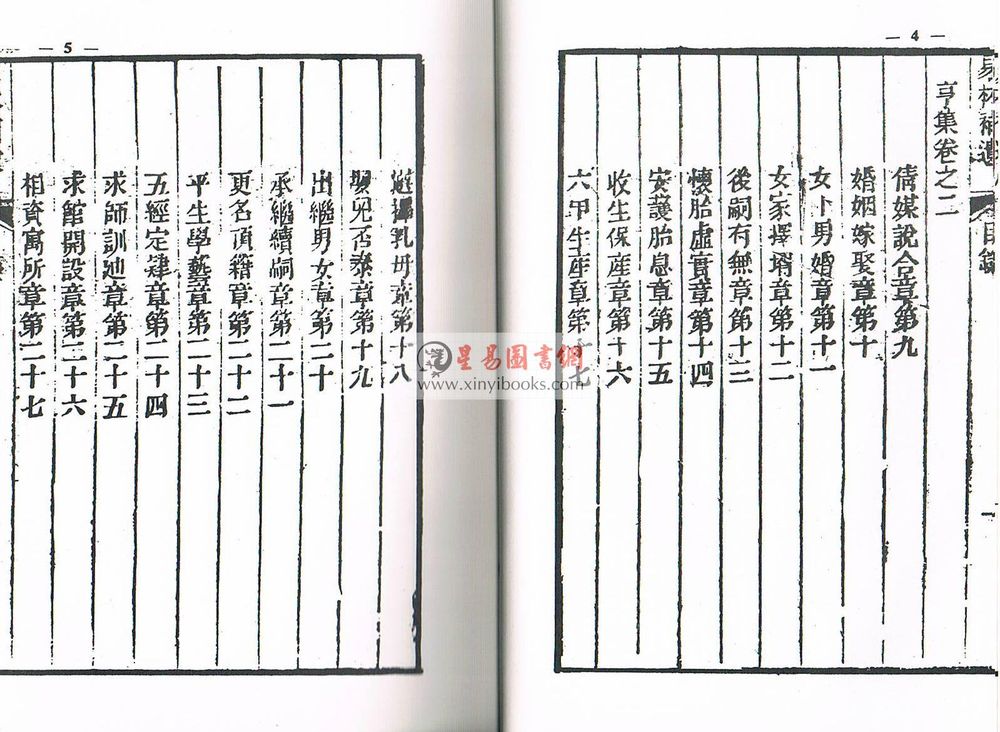 — 4 —
易林補遺
目錄
亨集卷之二
倩媒說合章第九
婚姻嫁娶章第十
女卜男婚章第十一
女家擇壻章第十二
後嗣有無章第十三
懷胎虛實章第十四
安護胎息章第十五
收生保產章第十六
六甲生產章第十七
— 5 —
選擇乳母章第十八
嬰兒否泰章第十九
出繼男女章第二十
承繼續嗣章第二十一
更名頂籍章第二十二
平生學藝章第二十三
五經定肄章第二十四
求師訓迪章第二十五
求館開設章第二十六
相資寓所章第二十七
星易圖書網
www.xinyibooks.com